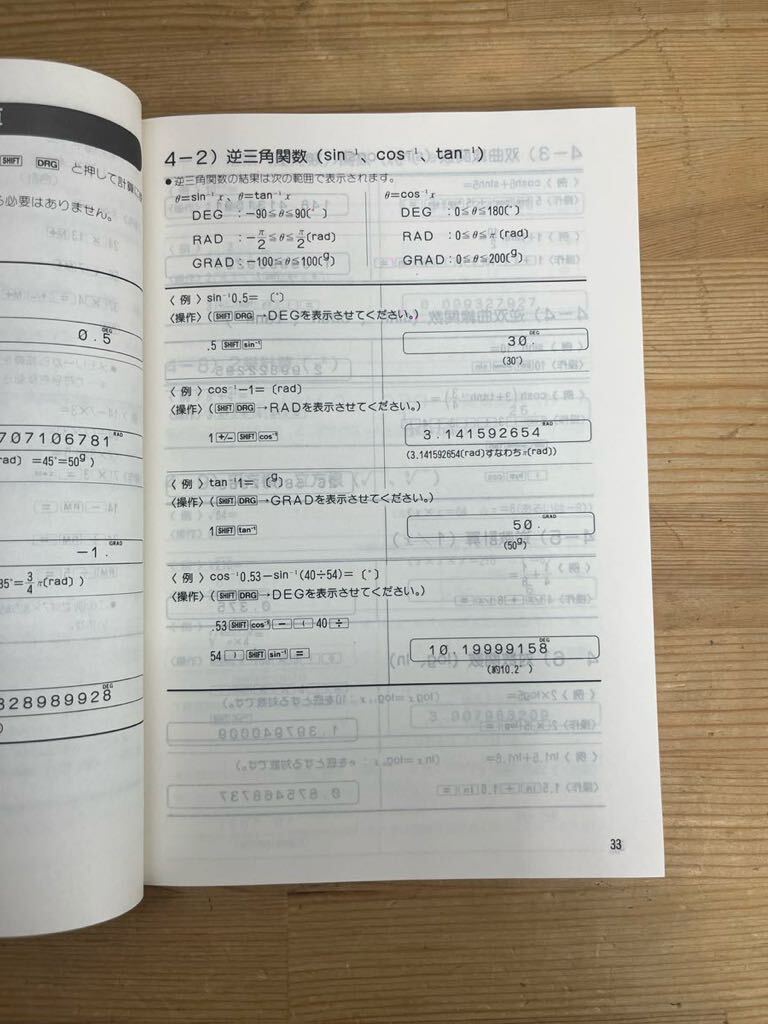 SHIFT DRG と押して計算に
必要はありません。
DEG
0.5
RAD
707106781
rad) =45°=50g)
GRAD
-1.
35°=3/4π(rad))
DEG
328989928
4-2) 逆三角関数 (sin⁻¹、cos⁻¹、tan⁻¹)
●逆三角関数の結果は次の範囲で表示されます。
θ=sin⁻¹x、θ=tan⁻¹x
DEG :-90≦θ≦90(°)
RAD :-π/2≦θ≦π/2(rad)
GRAD:-100≦θ≦100(g)
θ=cos⁻¹x
DEG :0≦θ≦180(°)
RAD :0≦θ≦π(rad)
GRAD:0≦θ≦200(g)
〈例〉sin⁻¹0.5= (°)
〈操作〉(SHIFT DRG→DEGを表示させてください。)
.5 SHIFT sin⁻¹
DEG
30.
(30°)
〈例〉cos⁻¹-1= (rad)
〈操作〉(SHIFT DRG→RADを表示させてください。)
1 +/- SHIFT cos⁻¹
RAD
3.141592654
(3.141592654(rad)すなわちπ(rad))
〈例〉tan⁻¹1= (g)
〈操作〉(SHIFT DRG→GRADを表示させてください。)
1 SHIFT tan⁻¹
GRAD
50.
(50g)
〈例〉cos⁻¹0.53-sin⁻¹(40÷54)= (°)
〈操作〉(SHIFT DRG→DEGを表示させてください。)
.53 SHIFT cos⁻¹ - ( 40 ÷
54 ) SHIFT sin⁻¹ =
DEG
10.19999158
(約10.2°)
33